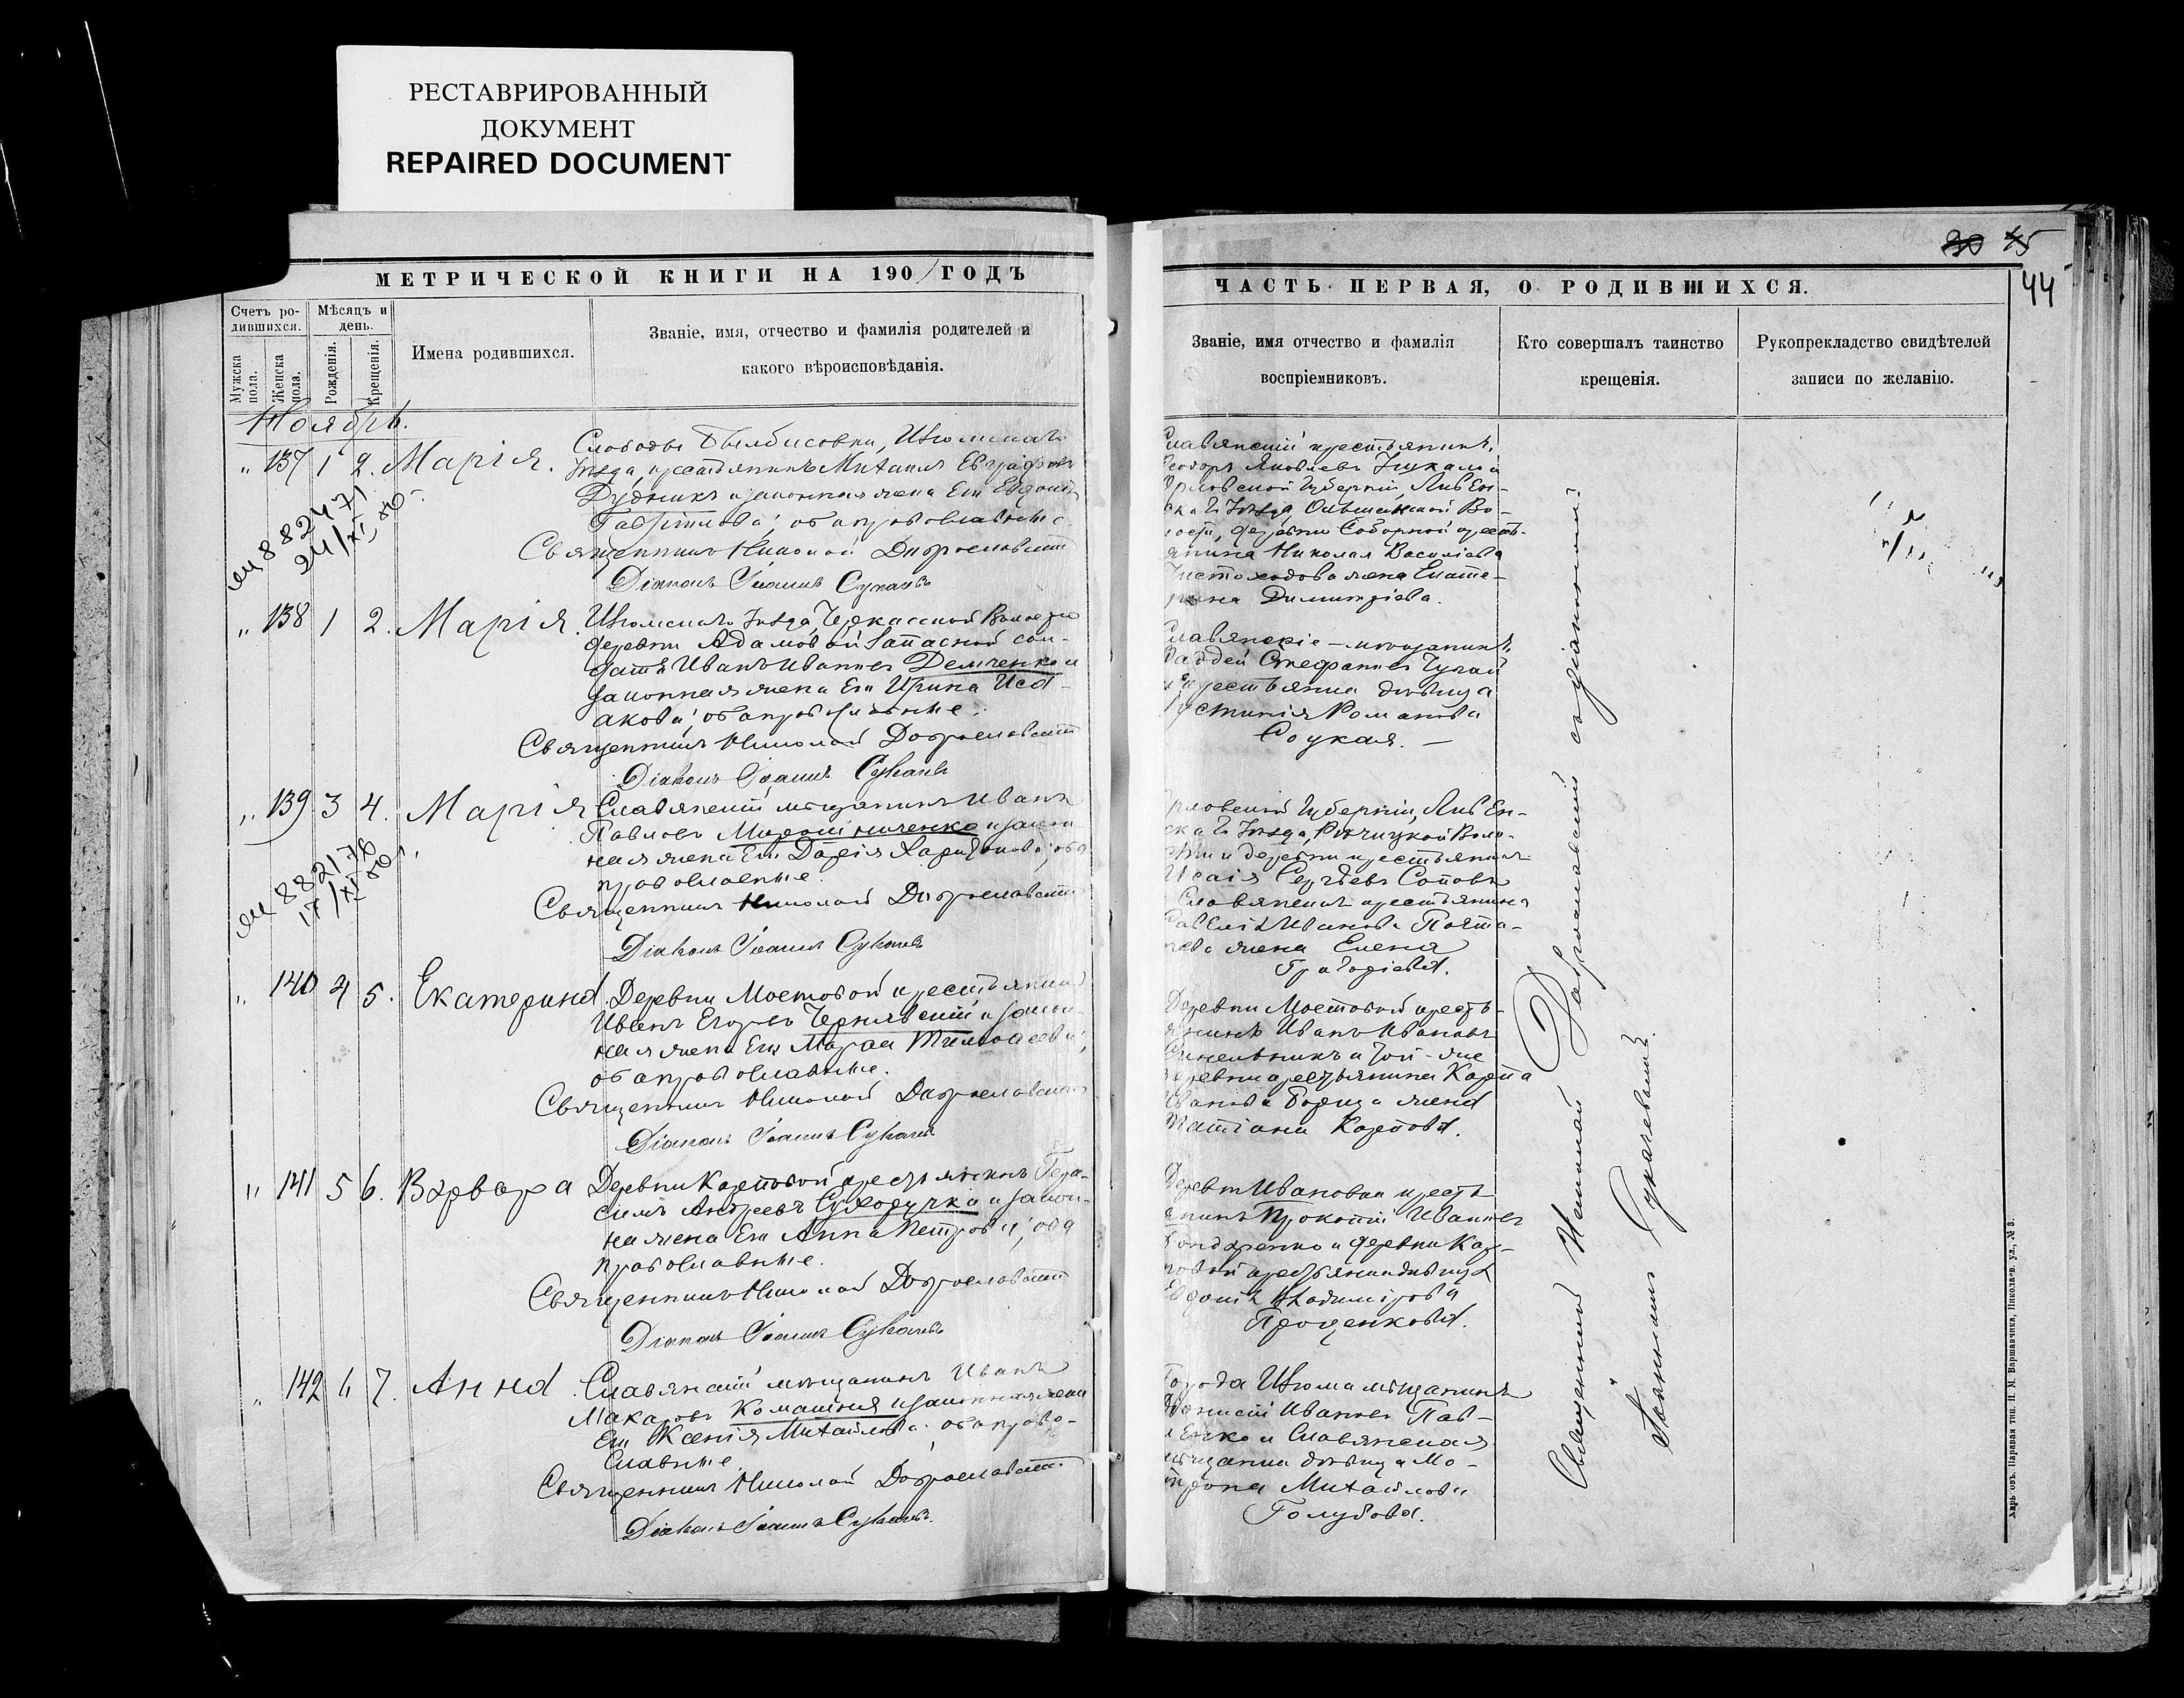 РЕСТАВРИРОВАННЫЙ
ДОКУМЕНТ
REPAIRED DOCUMENT
МЕТРИЧЕСКОЙ КНИГИ НА 190/ ГОДЪ
Счетъ ро-
дившихся.
Мѣсяцъ и
день.
Мужска
пола.
Женска
пола.
Рожденія.
Крещенія.
Имена родившихся.
Званіе, имя, отчество и фамилія родителей и
какого вѣроисповѣданія.
Ноябрь.
" 137 1 2. Марія.
Слободы Былбасовки, Изюмскаго
уѣзда, крестьянинъ Михаилъ Евграфовъ
Дудникъ и законная жена его Евдокія
оба православные.
Священникъ Николай Доброславскій
Діаконъ Іоаннъ
882471
24/XI
" 138 1 2. Марія.
Изюмскаго уѣзда, Черкасской Волости
деревни Адамовой запасной сол-
датъ Иванъ Ивановъ Демченко и
законная жена его Ирина Иса-
акова; оба православные.
Священникъ Николай Доброславскій
Діаконъ Іоаннъ
" 139 3 4. Марія
Славянскій мѣщанинъ Иванъ
Павловъ Мирошниченко и закон-
ная жена его Дарія Харитонова; оба
православные.
Священникъ Николай Доброславскій
Діаконъ Іоаннъ
882170
17/XI
" 140 4 5. Екатерина
Деревни Мостовой крестьянинъ
Иванъ Егоровъ Чернявскій и закон-
ная жена его Марѳа
оба православные.
Священникъ Николай Доброславскій
Діаконъ Іоаннъ
" 141 5 6. Варвара
Деревни Карповой крестьянинъ Гера-
симъ Андреевъ Сухоручко и закон-
ная жена его Анна Петрова; оба
православные.
Священникъ Николай Доброславскій
Діаконъ Іоаннъ
" 142 6 7. Анна
Славянскій мѣщанинъ Иванъ
Макаровъ Комашня и законная жена
его Ксенія Михайлова; оба право-
славные.
Священникъ Николай Доброславскій
Діаконъ Іоаннъ
30 45
44
ЧАСТЬ ПЕРВАЯ, О РОДИВШИХСЯ.
Званіе, имя отчество и фамилія
воспріемниковъ.
Кто совершалъ таинство
крещенія.
Рукоприкладство свидѣтелей
записи по желанію.
Славянскій крестьянинъ
Ѳеодоръ Яковлевъ
Орловской губерніи, Ливен-
скаго уѣзда, Во-
лости, деревни Соборной кресть-
янина Николая Василіева
Чистоходова жена Екате-
рина Димитріева.
Славянскіе – мѣщанинъ
Ѳаддей Стефановъ
и крестьянка дѣвица
Іустинія Романова
Соцкая. —
Орловской губерніи, Ливен-
скаго уѣзда, Рѣчицкой Воло-
сти и деревни крестьянинъ
Исаія Сергѣевъ Соповъ
и Славянскаго крестьянина
Савелія Иванова Полта-
жена Елена
Григоріева.
Деревни Мостовой кресть-
янинъ Иванъ Ивановъ
и той-же
деревни крестьянина Карпа
Иванова жена
Татіана Карпова.
Деревни Ивановки кресть
янинъ Прокопій Ивановъ
Бондаренко и деревни Кар-
повой крестьянка дѣвица
Евдокія Владимірова
Проценкова.
Города Изюма мѣщанинъ
Ивановъ Пав-
ленко и Славянская
мѣщанка дѣвица Ма-
трона Михайлова
Голубова.
Священникъ Николай Доброславскій съ діакономъ
Іоанномъ
Харьковъ. Паровая тип. И. М. Варшавчика, Николаев. ул., № 8.